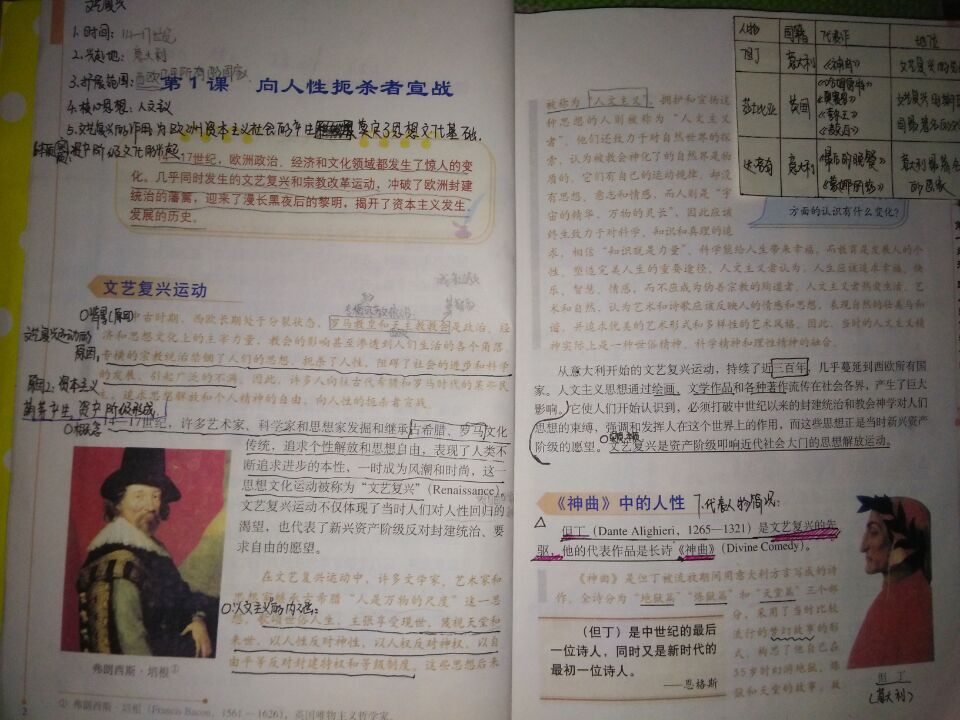 文艺复兴
1.时间：14—17世纪
2.兴起地：意大利
3.扩展范围：西欧所有的国家
第1课 向人性扼杀者宣战
4.核心思想：人文主义
5.文艺复兴的作用：为欧洲资本主义社会的产生奠定了思想文化基础，
资产阶级文化的兴起
14—17世纪，欧洲政治、经济和文化领域都发生了惊人的变
化。几乎同时发生的文艺复兴和宗教改革运动，冲破了欧洲封建
统治的藩篱，迎来了漫长黑夜后的黎明，揭开了资本主义发生、
发展的历史。
文艺复兴运动
背景(原因)
中古时期，西欧长期处于分裂状态，罗马教皇和天主教教会是政治、经
济和思想文化上的主宰力量，教会的影响甚至渗透到人们生活的各个角落。
专横的宗教统治禁锢了人们的思想，扼杀了人性，阻碍了社会的进步和科学
的发展，引起广泛的不满。因此，许多人向往古代希腊和罗马时代的某些民
主，追求思想解放和个人精神的自由，向人性的扼杀者宣战。
文艺复兴运动的
原因：
原因2：资本主义
萌芽产生，资产阶级形成
概念
14—17世纪，许多艺术家、科学家和思想家发掘和继承古希腊、罗马文化
传统，追求个性解放和思想自由，表现了人类不
断追求进步的本性，一时成为风潮和时尚，这一
思想文化运动被称为“文艺复兴”(Renaissance)。
文艺复兴运动不仅体现了当时人们对人性回归的
渴望，也代表了新兴资产阶级反对封建统治、要
求自由的愿望。
在文艺复兴运动中，许多文学家、艺术家和
思想家继承古希腊“人是万物的尺度”这一思
人文主义的内容：
想，歌颂世俗人生，主张享受现世，蔑视天堂和
来世，以人性反对神性，以人权反对神权，以自
由平等反对封建特权和等级制度。这些思想后来
弗朗西斯·培根①
① 弗朗西斯·培根(Francis Bacon，1561—1626)，英国唯物主义哲学家。
2
人物 国籍 代表作 地位
但丁 意大利 《神曲》
莎士比亚 英国 《哈姆雷特》
《李尔王》
达·芬奇 意大利 《最后的晚餐》
《蒙娜丽莎》
方面的认识有什么变化？
被称为“人文主义”，拥护和宣扬这
种思想的人则被称为“人文主义
者”。他们还致力于对自然世界的探
索，认为被教会神化了的自然界是物
质的，它们有自己的运动规律，却没
有思想、意志和情感，而人则是“宇
宙的精华、万物的灵长”，因此应该
终生致力于对科学、知识和真理的追
求，相信“知识就是力量”、科学能给人生带来幸福，而教育是发展人的个
性，塑造完美人生的重要途径。人文主义者认为，人生应该追求幸福、快
乐、智慧、情感，而不应成为伪善宗教的殉道者。人文主义者热爱生活、艺
术和自然，认为艺术和诗歌应该反映人的情感和思想，表现自然的壮美与和
谐，并追求优美的艺术形式和多样性的艺术风格。因此，当时的人文主义精
神实际上是一种世俗精神、科学精神和理性精神的融合。
从意大利开始的文艺复兴运动，持续了近三百年，几乎蔓延到西欧所有国
家。人文主义思想通过绘画、文学作品和各种著作流传在社会各界，产生了巨大
影响。它使人们开始认识到，必须打破中世纪以来的封建统治和教会神学对人们
思想的束缚，强调和发挥人在这个世界上的作用，而这些思想正是当时新兴资产
阶级的愿望。文艺复兴是资产阶级叩响近代社会大门的思想解放运动。
《神曲》中的人性
7.代表人物简况：
但丁(Dante Alighieri，1265—1321)是文艺复兴的先
驱，他的代表作品是长诗《神曲》(Divine Comedy)。
《神曲》是但丁被流放期间用意大利方言写成的诗
作，全诗分为“地狱篇”“炼狱篇”和“天堂篇”三个部
分，采用了当时比较
流行的梦幻故事的形
式，构思了他自己在
35岁时幻游地狱、炼
狱和天堂的故事，故
(但丁)是中世纪的最后
一位诗人，同时又是新时代的
最初一位诗人。
——恩格斯
但丁
(意大利)